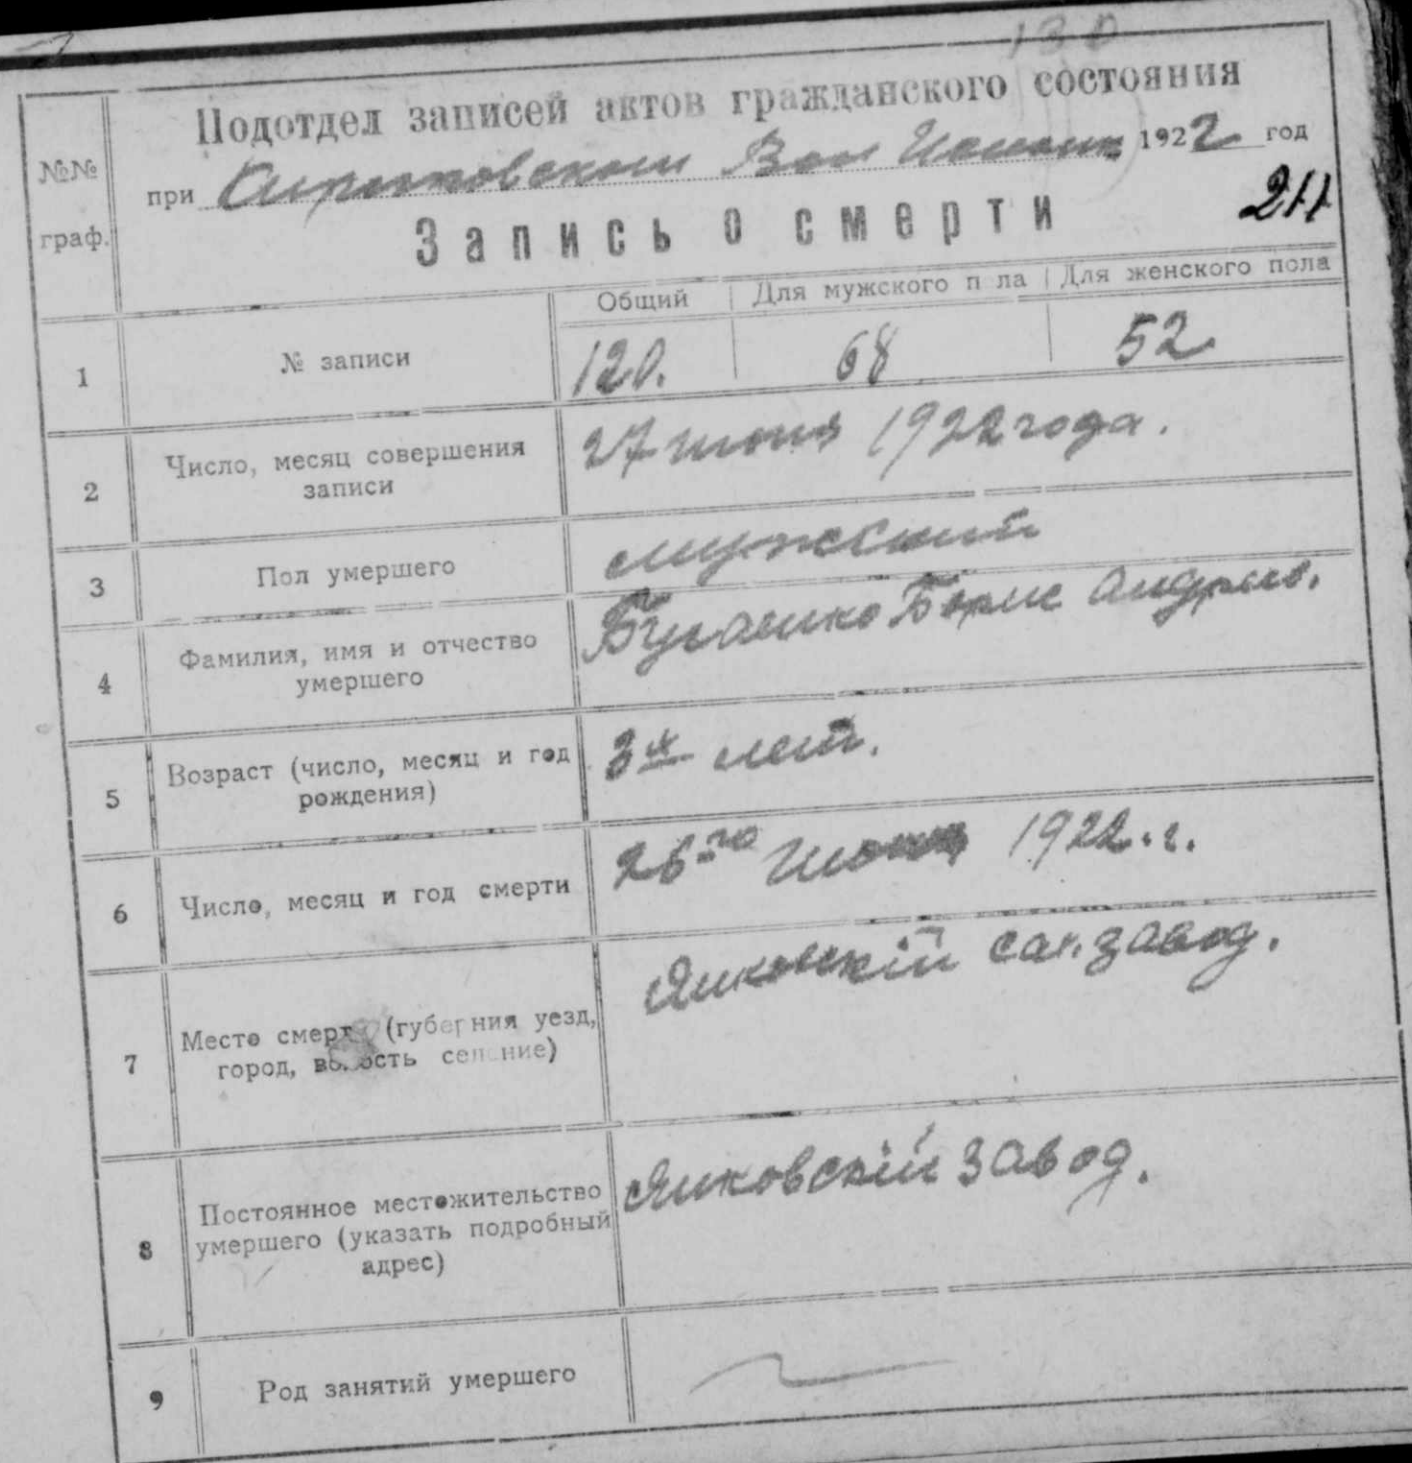 130
Подотдел записей актов гражданского состояния
№№
граф.
при Вол 1922 год
211
Запись о смерти
Общий Для мужского п ла Для женского пола
1 № записи 120. 68 52
2 Число, месяц совершения
записи
27 июня 1922 года.
3 Пол умершего мужский
4 Фамилия, имя и отчество
умершего
Борис Андрив.
5 Возраст (число, месяц и год
рождения)
3х лет.
6 Число, месяц и год смерти 26го Июня 1922.г.
7 Место смерти (губерния уезд,
город, волость селение)
Янковскій сах. завод.
8 Постоянное местожительство
умершего (указать подробный
адрес)
Янковскій завод.
9 Род занятий умершего